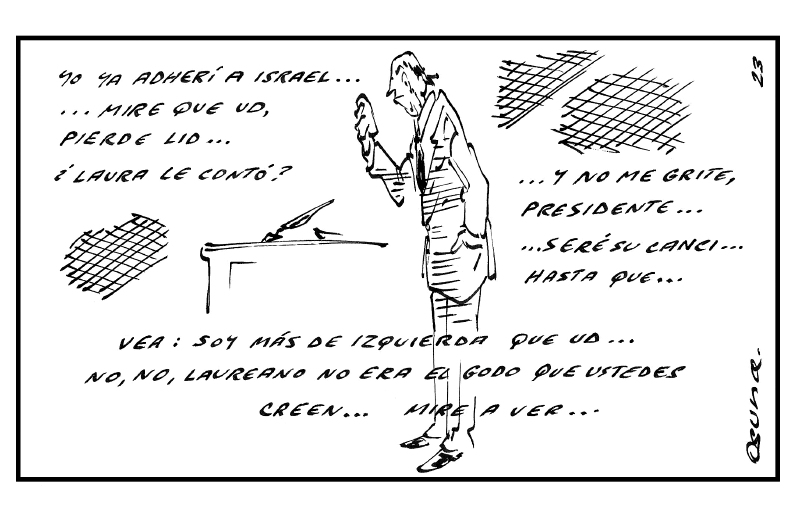 YO YA ADHERÍ A ISRAEL...
... MIRE QUE UD,
PIERDE LID...
¿LAURA LE CONTÓ?
...Y NO ME GRITE,
PRESIDENTE...
...SERÉ SU CANCI...
HASTA QUE...
VEA: SOY MÁS DE IZQUIERDA QUE UD...
NO, NO, LAUREANO NO ERA EL GODO QUE USTEDES
CREEN... MIRE A VER...
23
OSUNA.